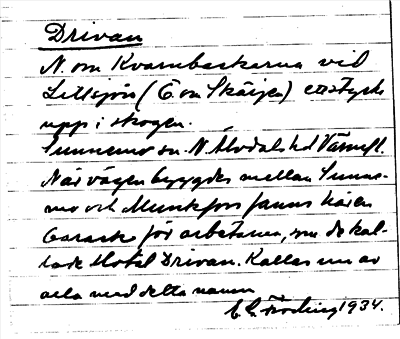 Drivan
N. om Kvarnbackarna vid
Lillsjön (Ö. om Skärjen) ett stycke
upp i skogen.
Sunnemo sn. N. Älvdals hd Värml.
När vägen byggdes mellan Sunne-
mo och Munkfors fanns här en
barack för arbetarna, som de kal-
lade Hotel Drivan. Kallas nu av
alla med detta namn
E. G. 1934.